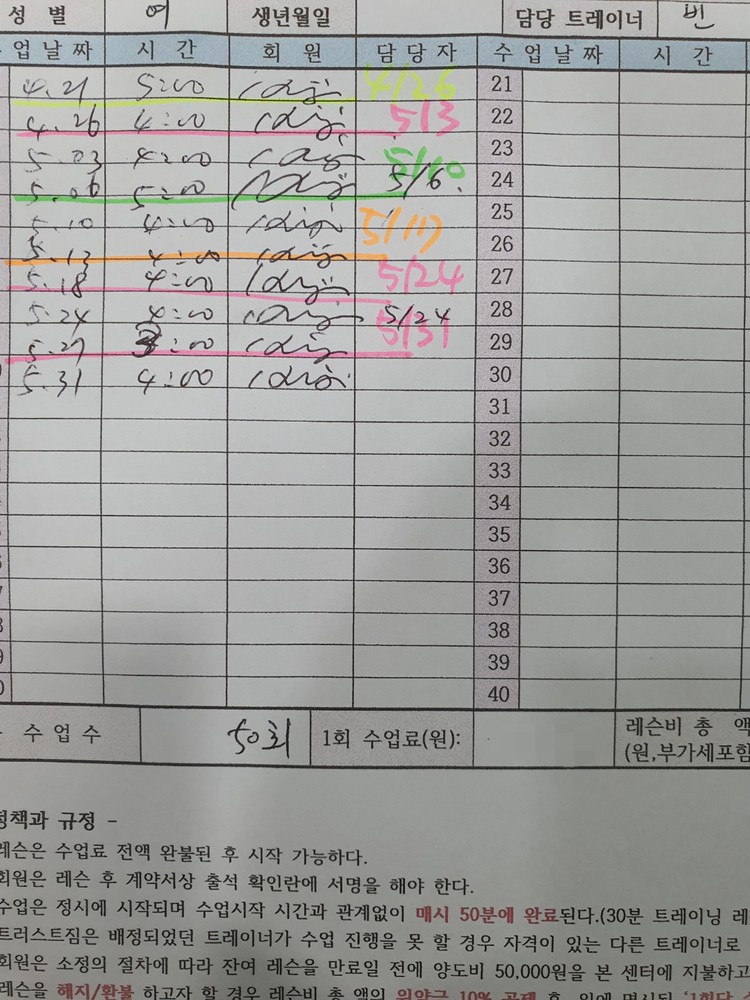 성 별 여 생년월일 담당 트레이너 빈
업 날 짜 시 간 회 원 담 당 자 수 업 날 짜 시 간
4.21 5:00 4/26 21
4.26 4:00 5/3 22
5.03 4:00 5/10 23
5.06 5:00 5/6. 24
5.10 4:00 5/17 25
5.13 4:00 26
5.18 4:00 5/24 27
5.24 4:00 5/24 28
5.27 3:00 5/31 29
5.31 4:00 30
31
32
33
34
35
36
37
38
39
40
수 업 수 50회 1회 수업료(원): 레슨비 총 액
(원,부가세포함
정책과 규정 -
레슨은 수업료 전액 완불된 후 시작 가능하다.
회원은 레슨 후 계약서상 출석 확인란에 서명을 해야 한다.
수업은 정시에 시작되며 수업시작 시간과 관계없이 매시 50분에 완료된다.(30분 트레이닝 레
트러스트짐은 배정되었던 트레이너가 수업 진행을 못 할 경우 자격이 있는 다른 트레이너로
회원은 소정의 절차에 따라 잔여 레슨을 만료일 전에 양도비 50,000원을 본 센터에 지불하고
레슨을 해지/환불 하고자 할 경우 레슨비 총 액의 위약금 10% 공제 후, 위에 명시된 '1회당